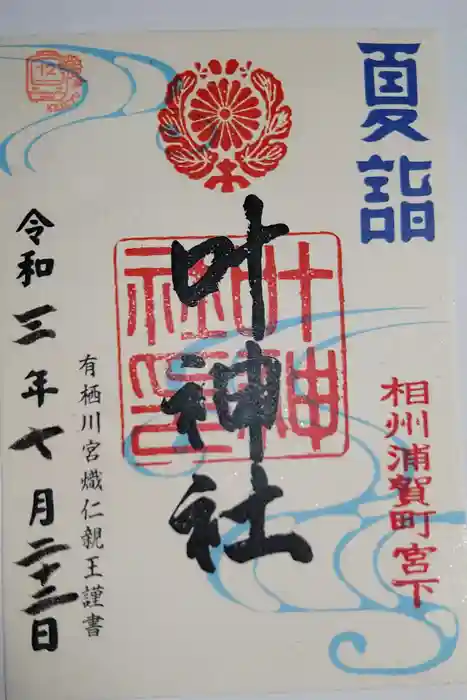 夏詣
相州浦賀町宮下
叶神社
叶神社印
有栖川宮熾仁親王謹書
令和三年七月二十二日
12